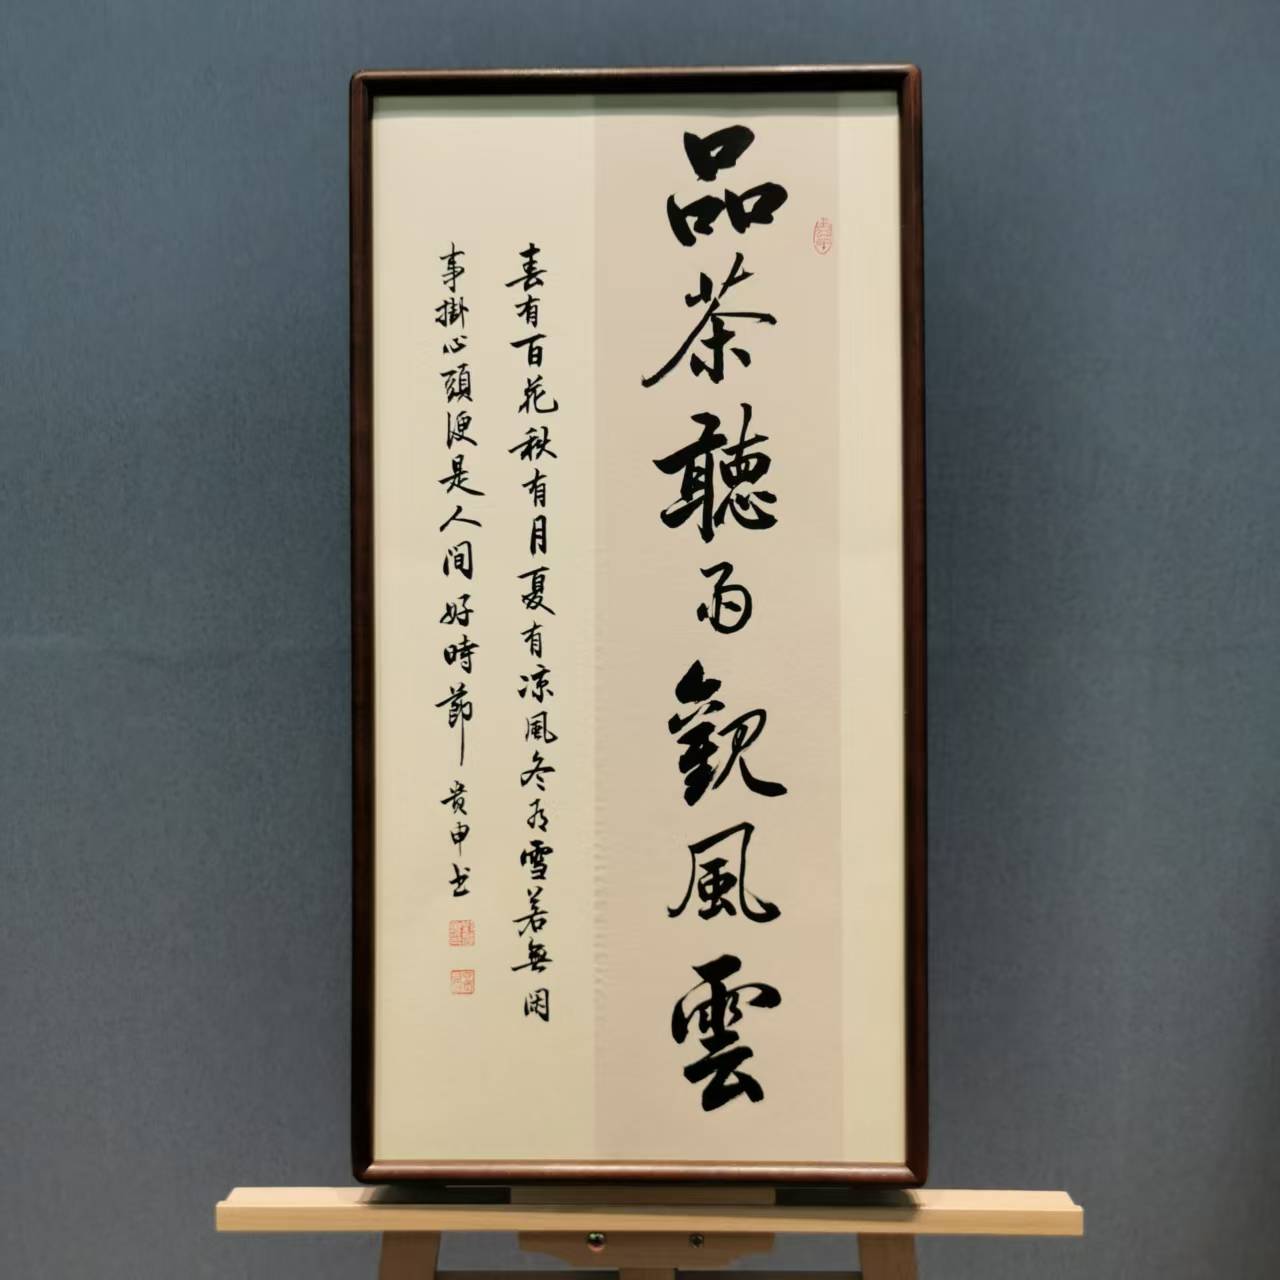 品茶聽雨觀風雲
春有百花秋有月夏有凉風冬有雪若無閑
事掛心頭便是人间好時節 贵申书